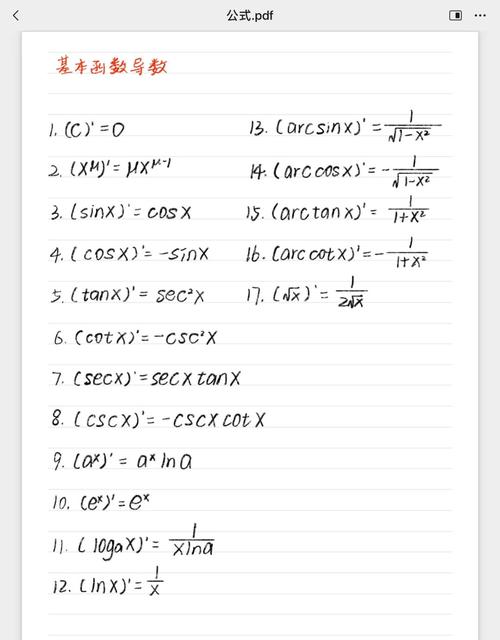 公式.pdf
基本函数导数
1. (C)'=0
2. (X^μ)'=μX^μ-1
3. (sinx)'=cosx
4. (cosx)'=-sinx
5. (tanx)'=sec²x
6. (cotx)'=-csc²x
7. (secx)'=secxtanx
8. (cscx)'=-cscxcotx
9. (a^x)'=a^x lna
10. (e^x)'=e^x
11. (logax)'=1/xlna
12. (lnx)'=1/x
13. (arcsinx)'=1/√1-x²
14. (arccosx)'=-1/√1-x²
15. (arctanx)'=1/1+x²
16. (arccotx)'=-1/1+x²
17. (√x)'=1/2√x